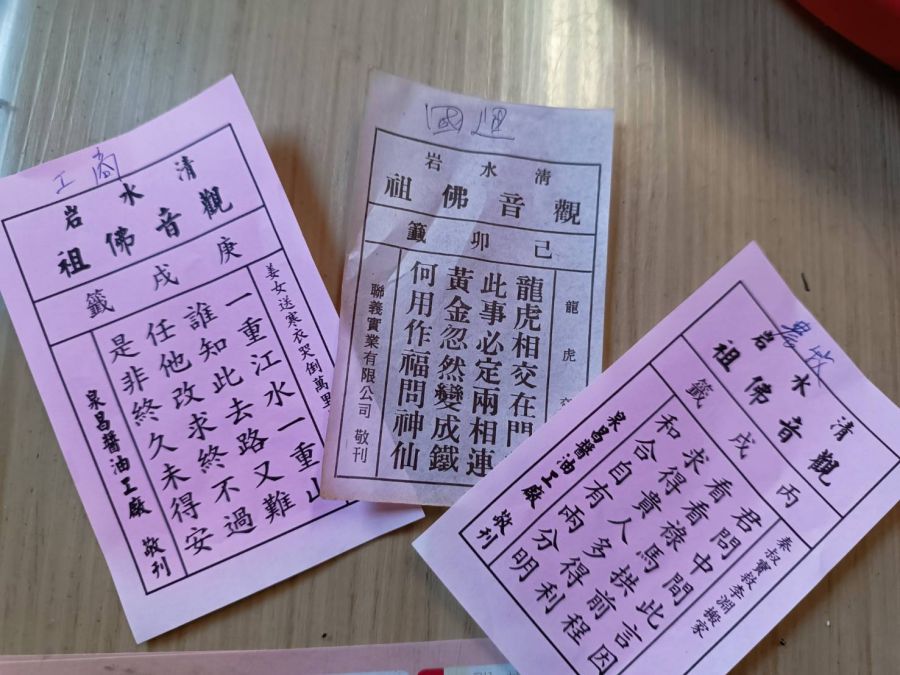 工商
清水岩
觀音佛祖
庚戌籤
姜女送寒衣哭倒萬里
一重江水一重山
誰知此去路又難
任他改求終不過
是非終久未得安
泉昌醬油工廠 敬刊
國運
清水岩
觀音佛祖
己卯籤
龍虎
龍虎相交在門
此事必定兩相連
黃金忽然變成鐵
何用作福問神仙
聯義實業有限公司 敬刊
農牧
清水岩
觀音佛祖
丙戌籤
秦叔寶救李淵搬家
君問中間此言因
看看祿馬拱前程
求得貴人多得利
和合自有兩分明
泉昌醬油工廠 敬刊